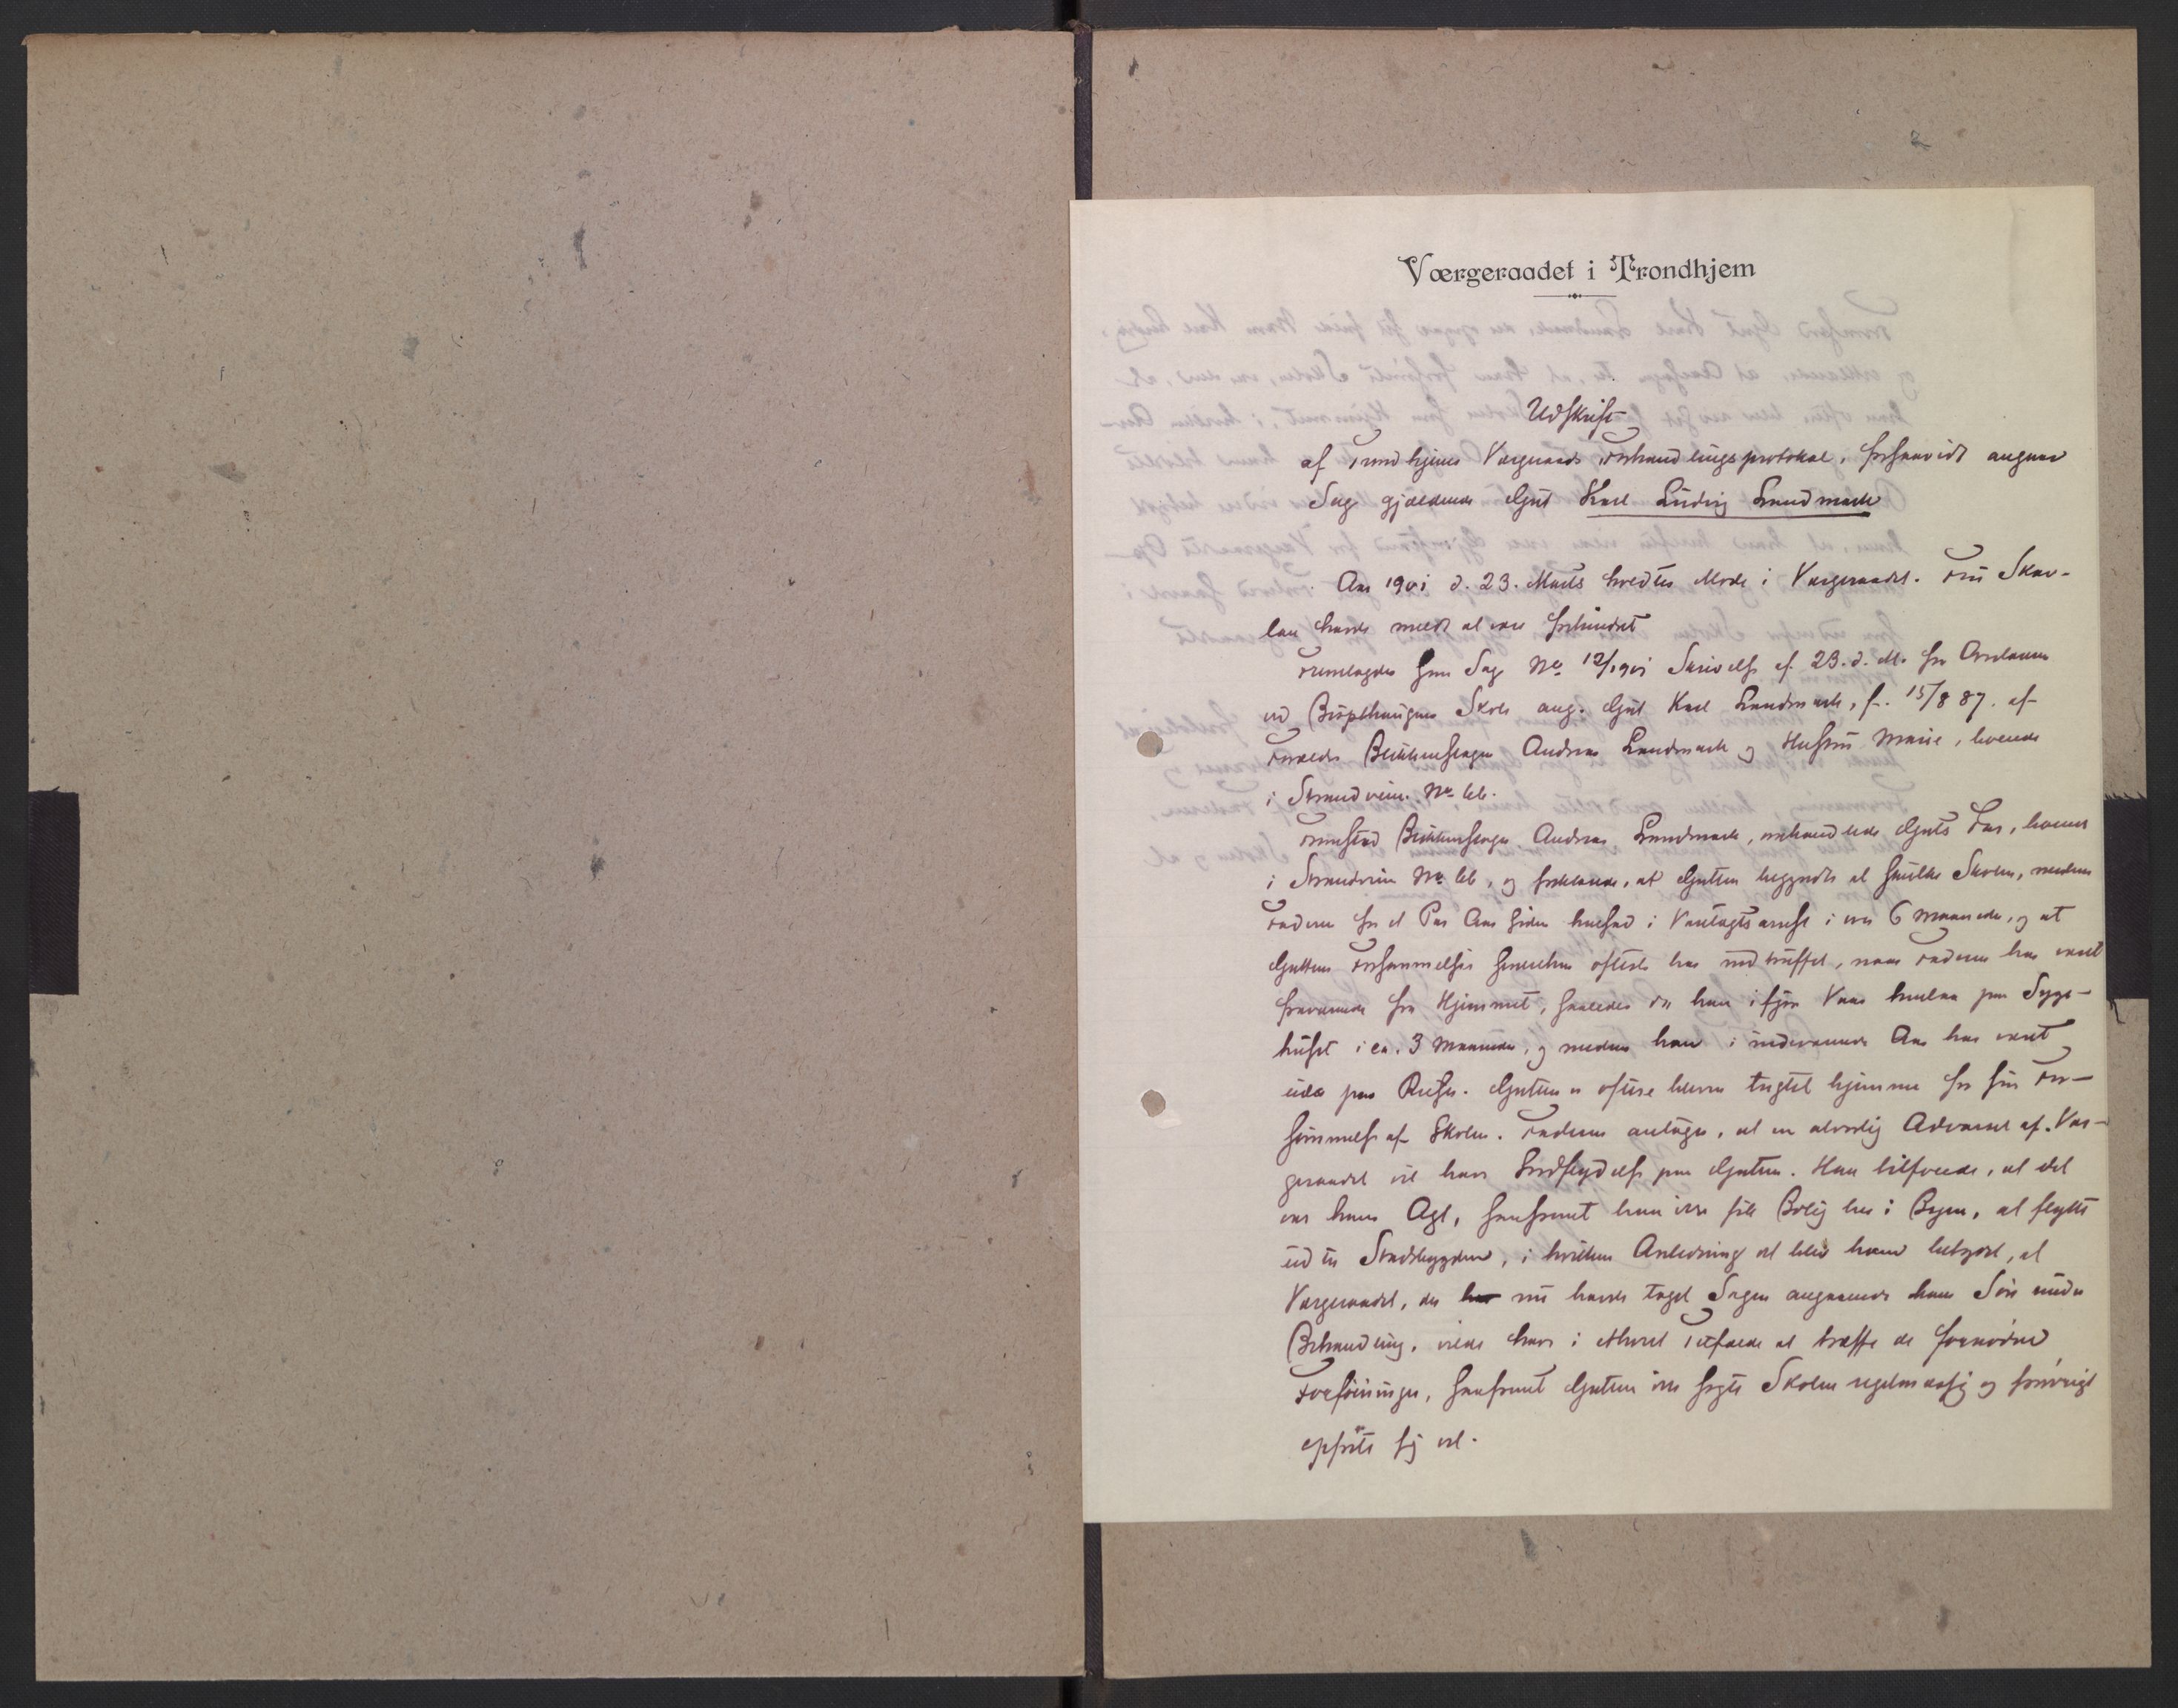 Værgeraadet i Trondhjem
Udskrift
af Trondhjems Værgeraads Forhandlingsprotokol, forsaavidt angaar
Sag gjældende Gut Karl Ludvig Landmark
Aar 1901 d. 23. Marts holdtes Møde i Værgeraadet. Fru Skav-
lan havde meldt at være forhindret
Fremlagdes som Sag No 12/1901 Skrivelse af 23. d. M. fra Overlærer
ved Bispehaugens Skole ang. Gut Karl Landmark, f. 15/8 87. af
Forældre Blikkenslager Andreas Landmark og Hustru Marie, boende
i Strandveien No
Fremstod Blikkenslager Andreas Landmark, omhandlede Guts Far, boende
i Strandveien No, og forklarede, at Gutten begyndte at skulke Skolen, medens
Faderen for et Par Aar siden hensad i Varetægtsarrest i over 6 Maaneder, og at
Guttens Forsømmelser senerehen oftest har indtruffet, naar Faderen har været
fraværende fra Hjemmet, saaledes da han ifjor Vaar henlaa paa Syge-
huset i ca. 3 Maaneder, og medens han i indeværende Aar har været
ude paa Reise. Gutten er oftere bleven tugtet hjemme for sin For-
sømmelse af Skolen. Faderen antager, at en alvorlig Advarsel af Vær-
geraadet vil have Indflydelse paa Gutten. Han tilføiede, at det
var hans Agt, saafremt han ikke fik Bolig her i Byen, at flytte
ud til Stadsbygden, i hvilken Anledning det blev ham betydet, at
Værgeraadet, der nu havde taget Sagen angaaende hans Søn under
Behandling, vilde have i ethvert Tilfælde at træffe de fornødne
Forføininger, saafremt Gutten ikke søgte Skolen regelmæssig og forøvrigt
opførte sig vel.